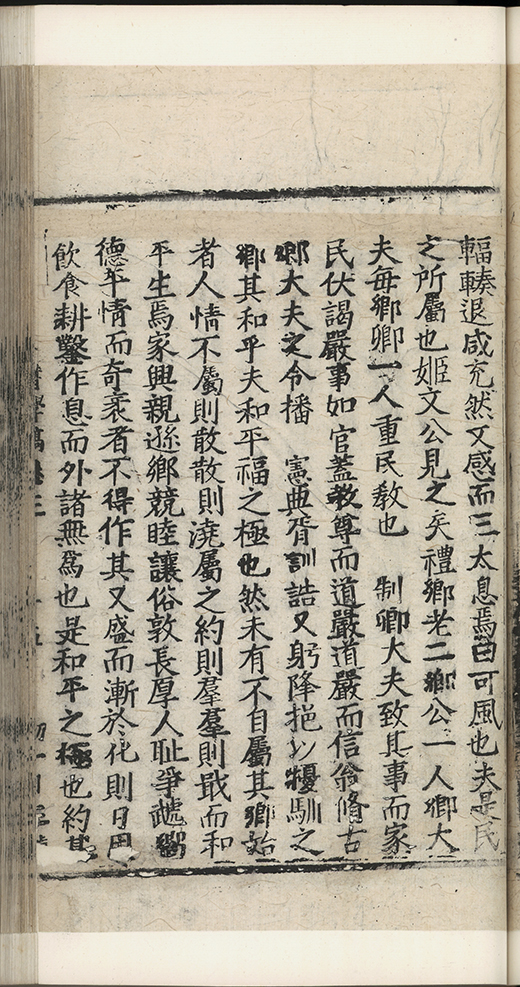 輻輳退咸充然又感而三太息焉曰可風也夫是民
之所屬也姬文公見之矣禮鄉老二鄉公一人鄉大
夫每鄉卿一人重民敎也 制卿大夫致其事而家
民伏謁嚴事如官蓋敎尊而道嚴道嚴而信翁脩古
鄉大夫之令播 憲典胥訓誥又躬降挹以擾馴之
鄉其和平夫和平福之極也然未有不自屬其鄉始
者人情不屬則散散則澆屬之約則羣羣則戢而和
平生焉家興親遜鄉競睦讓俗敦長厚人耻爭
德平情而奇衺者不得作其又盛而漸於化則日用
飲食耕鑿作息而外諸無爲也是和平之極也約其